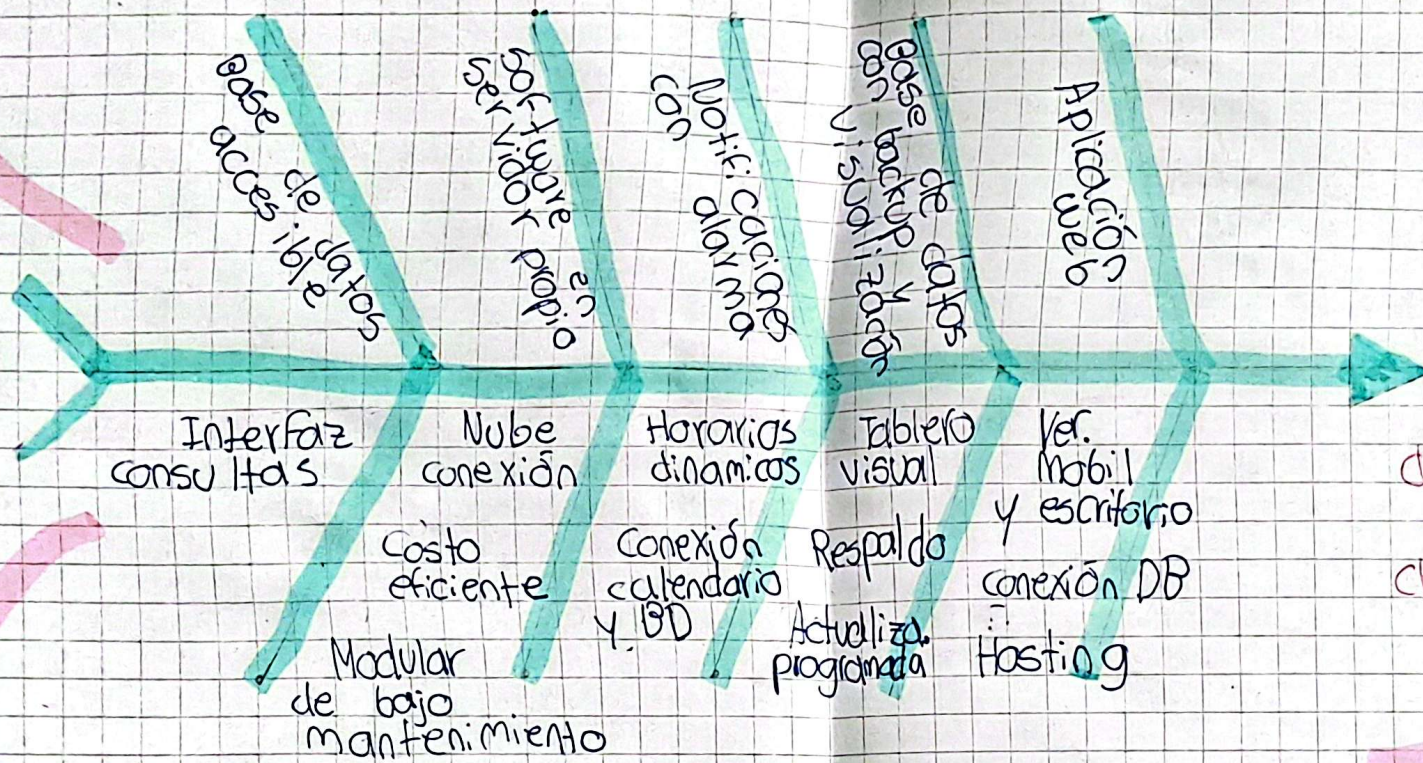 Base de datos
accesible
Software en
servidor propio
Notificaciones
con alarma
Base de datos
con backup y
visualización
Aplicación
web
Interfaz
consultas
Nube
conexión
Costo
eficiente
Modular
de bajo
mantenimiento
Horarios
dinamicos
Conexión
calendario
y BD
Tablero
visual
Respaldo
Actualiza.
programada
Ver.
Mobil
y escritorio
conexión DB
Hosting